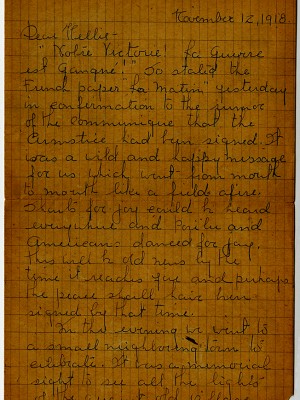 November 12, 1918
Dear Nellis-
"Noble Victorie! La Guerre
est Gangne!" So stated the
French paper La Matin yesterday
in confirmation to the rumor
of the communique that the
Armistice had been signed. It
was a wild and happy message
for us which went from mouth
to mouth like a field afire.
Shouts for joy could be heard
everywhere and Poilu and
Americans danced for joy.
This will be old news by the
time it reaches you and perhaps
the peace shall have been
signed by that time.
In the evening we went to
a small neighbouring town to
celebrate. It was a memorial
sight to see all the lights
of the old village